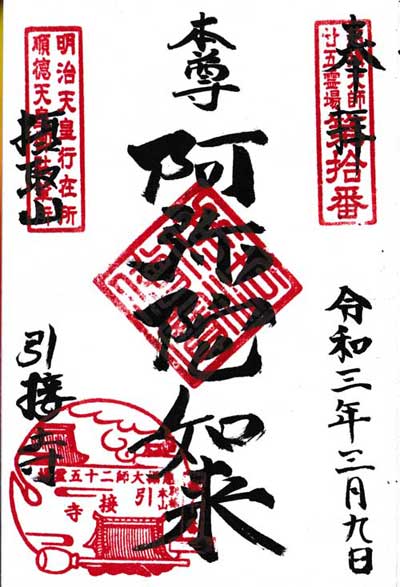 奉拝
拾番
廿五霊場
本尊
阿弥陀如来
明治天皇行在所
順徳天皇
摂取山
引接寺
大師二十五霊
引接寺
本山
令和三年三月九日